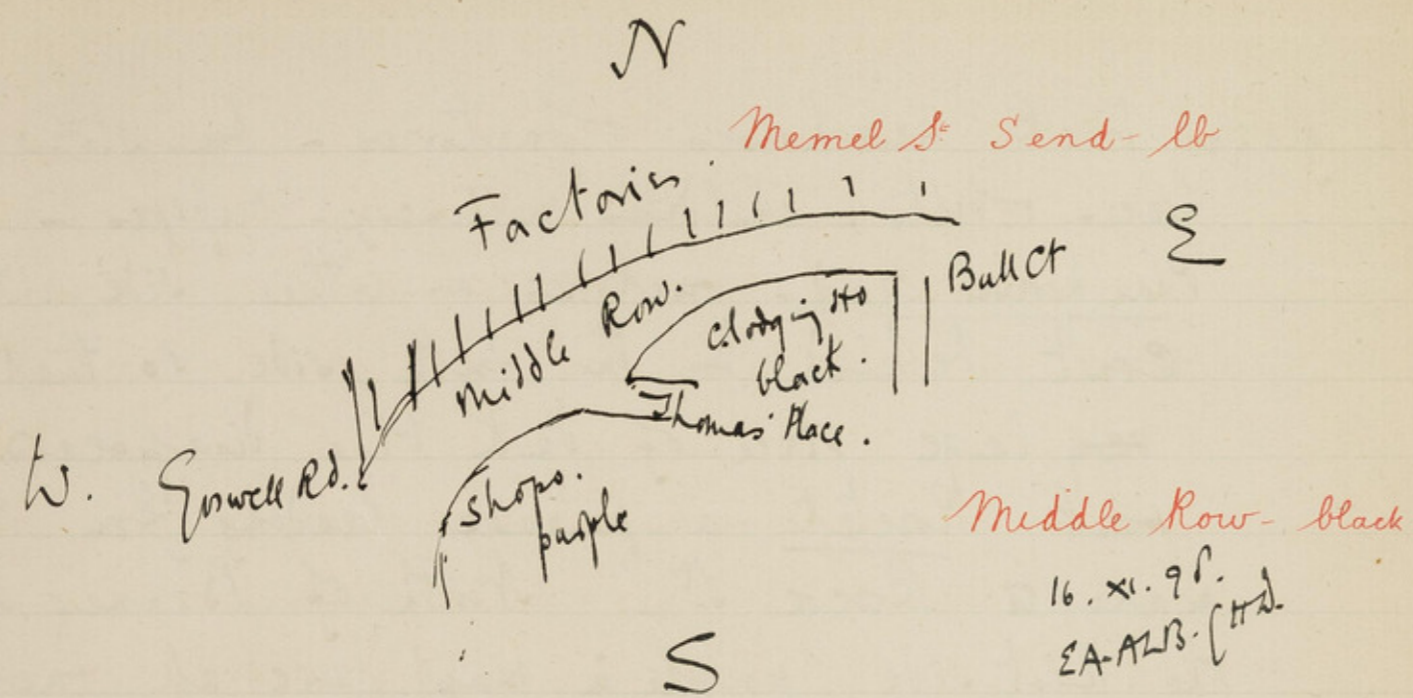 N
Memel St Send - lb
Factories
E
Bull Ct
Middle Row.
C. lodging Ho
black.
Thomas' Place.
W. Goswell Rd.
shops.
purple
Middle Row - black
16. XI. 98.
EA-ALB-
S